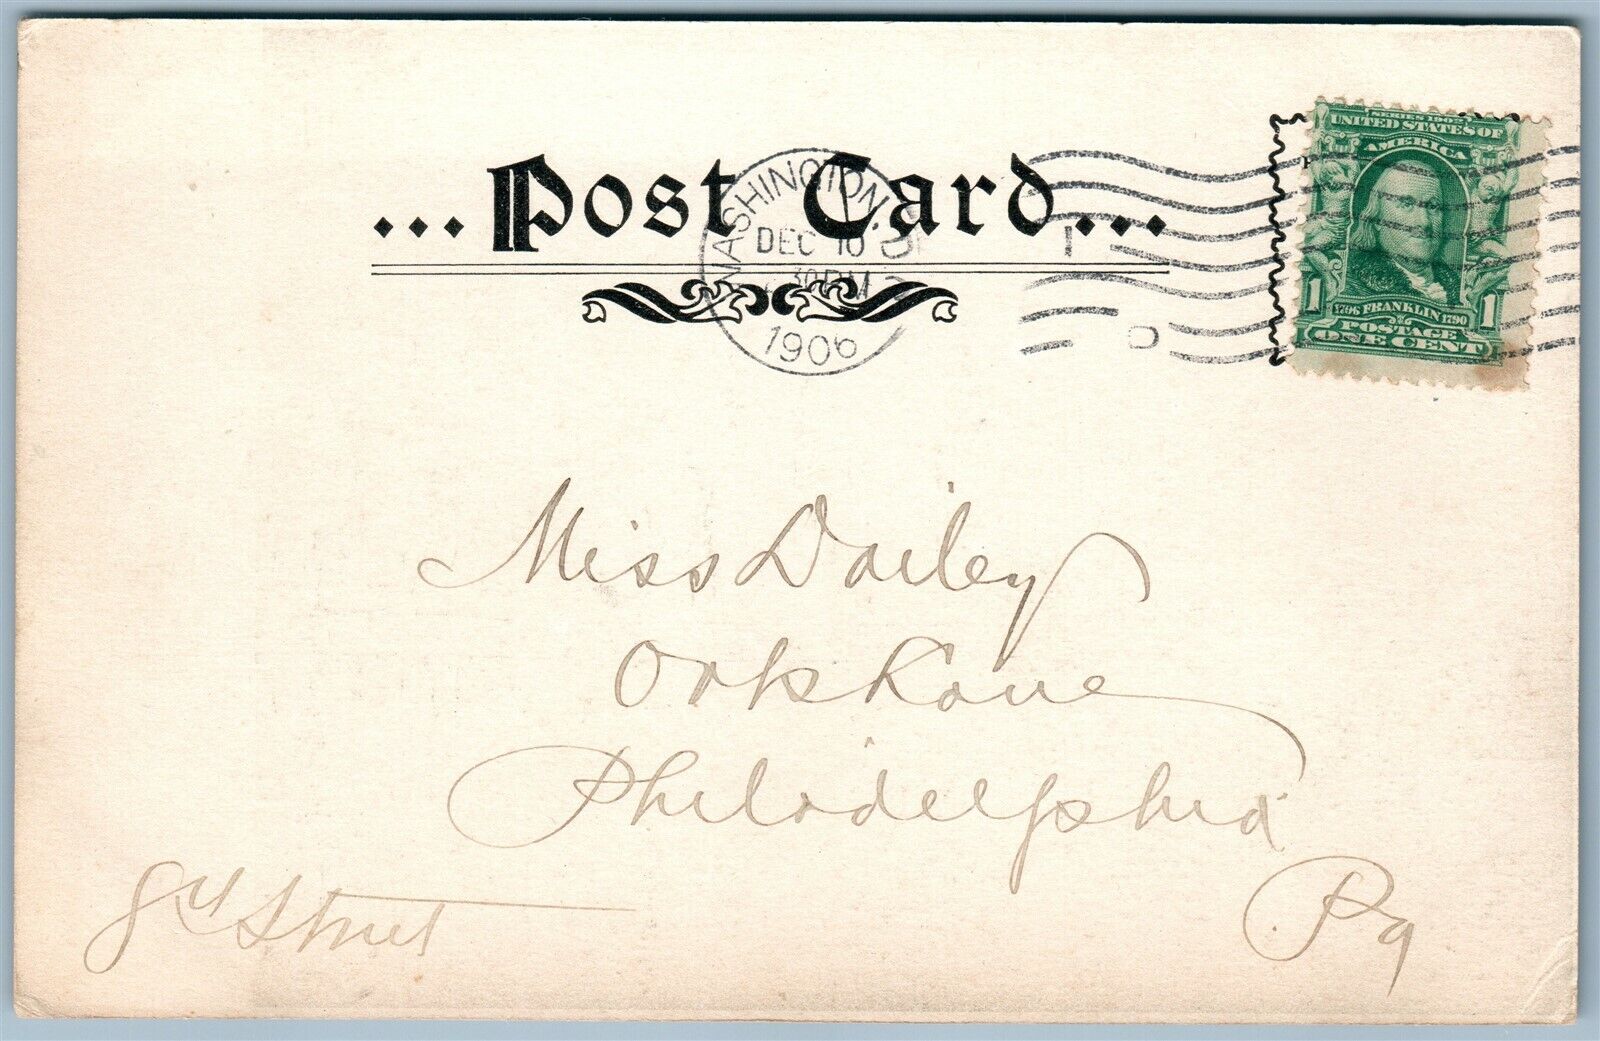 SERIES 1902
UNITED STATES OF
AMERICA
1 1
1706 FRANKLIN 1790
POSTAGE
ONE CENT
...Post Card...
WASHINGTON, D.
DEC 10
30 PM
1906
Miss Dailey
Oak Lane
Philadelphia
Pa
8th Street